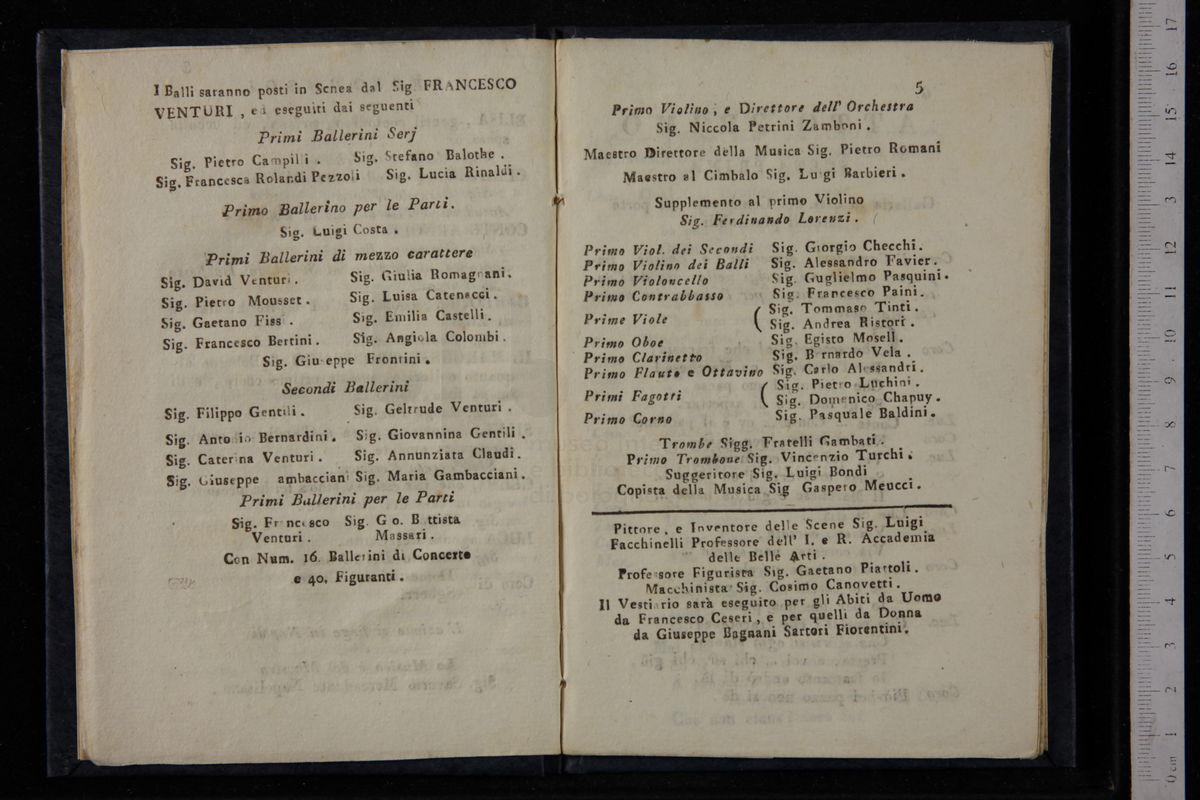 I Balli saranno posti in Scnea dal Sig FRANCESCO
VENTURI , ed eseguiti dai seguenti
Primi Ballerini Serj
Sig. Pietro Campilli . Sig. Stefano Balothe .
Sig. Francesca Rolandi Pezzoli Sig. Lucia Rinaldi .
Primo Ballerino per le Parti .
Sig. Luigi Costa .
Primi Ballerini di mezzo carattere
Sig. David Venturi . Sig. Giulia Romagnani .
Sig. Pietro Mousset . Sig. Luisa Catenacci .
Sig. Gaetano Fissi . Sig. Emilia Castelli .
Sig. Francesco Bertini . Sig. Angiola Colombi .
Sig. Giuseppe Frontini .
Secondi Ballerini
Sig. Filippo Gentili . Sig. Geltrude Venturi .
Sig. Antonio Bernardini . Sig. Giovannina Gentili .
Sig. Caterina Venturi . Sig. Annunziata Claudi .
Sig. Giuseppe ambacciani Sig. Maria Gambacciani .
Primi Ballerini per le Parti
Sig. Francesco Sig. Gio. Battista
Venturi . Massari .
Con Num. 16. Ballerini di Concerto
e 40. Figuranti .
5
Primo Violino , e Direttore dell' Orchestra
Sig. Niccola Petrini Zamboni .
Maestro Direttore della Musica Sig. Pietro Romani
Maestro al Cimbalo Sig. Luigi Barbieri .
Supplemento al primo Violino
Sig. Ferdinando Lorenzi .
Primo Viol. dei Secondi Sig. Giorgio Checchi .
Primo Violino dei Balli Sig. Alessandro Favier .
Primo Violoncello Sig. Guglielmo Pasquini .
Primo Contrabbasso Sig. Francesco Paini .
Prime Viole ( Sig. Tommaso Tinti .
( Sig. Andrea Ristori .
Primo Oboe Sig. Egisto Mosell .
Primo Clarinetto Sig. Bernardo Vela .
Primo Flauto e Ottavino Sig. Carlo Alessandri .
Primi Fagotti ( Sig. Pietro Luchini .
( Sig. Domenico Chapuy .
Primo Corno Sig. Pasquale Baldini .
Trombe Sigg. Fratelli Gambati .
Primo Trombone Sig. Vincenzio Turchi .
Suggeritore Sig. Luigi Bondi
Copista della Musica Sig Gaspero Meucci .
Pittore , e Inventore delle Scene Sig. Luigi
Facchinelli Professore dell' I. e R. Accademia
delle Belle Arti .
Professore Figurista Sig. Gaetano Piattoli .
Macchinista Sig. Cosimo Canovetti .
Il Vestiario sarà eseguito per gli Abiti da Uomo
da Francesco Ceseri , e per quelli da Donna
da Giuseppe Bagnani Sartori Fiorentini .
0 cm 1 2 3 4 5 6 7 8 9 10 11 12 13 14 15 16 17